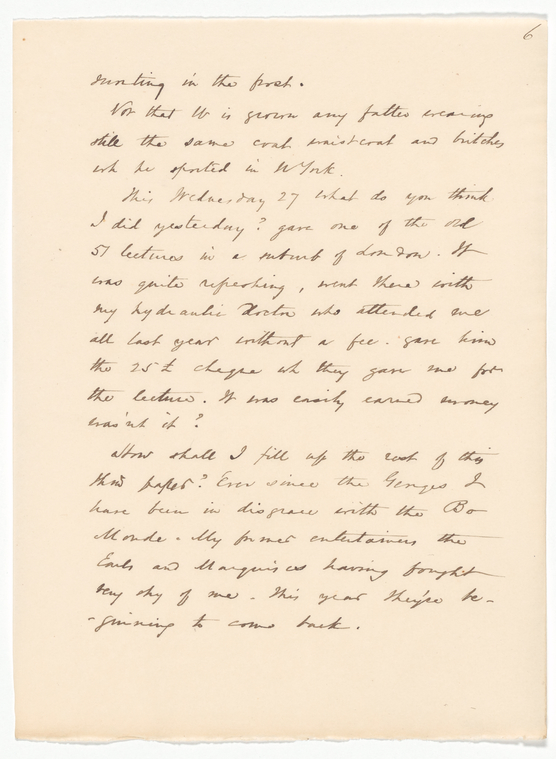 6
in the frost.
Not that W is grown any fatter wearing
still the same coat waistcoat and britches
wh he sported in N York.
This Wednesday 27 what do you think
I did yesterday? gave one of the old
51 lectures in a suburb of London. It
was quite refreshing, went there with
my hydraulic Doctor who attended me
all last year without a fee. gave him
the 25£ cheque wh they gave me for
the lecture. It was easily earned money
was'nt it?
How shall I fill up the rest of this
thin paper? Ever since the Georges I
have been in disgrace with the Bo
Monde - My former entertainers the
Earls and Marquises having fought
very shy of me - This year they're be-
-ginning to come back.